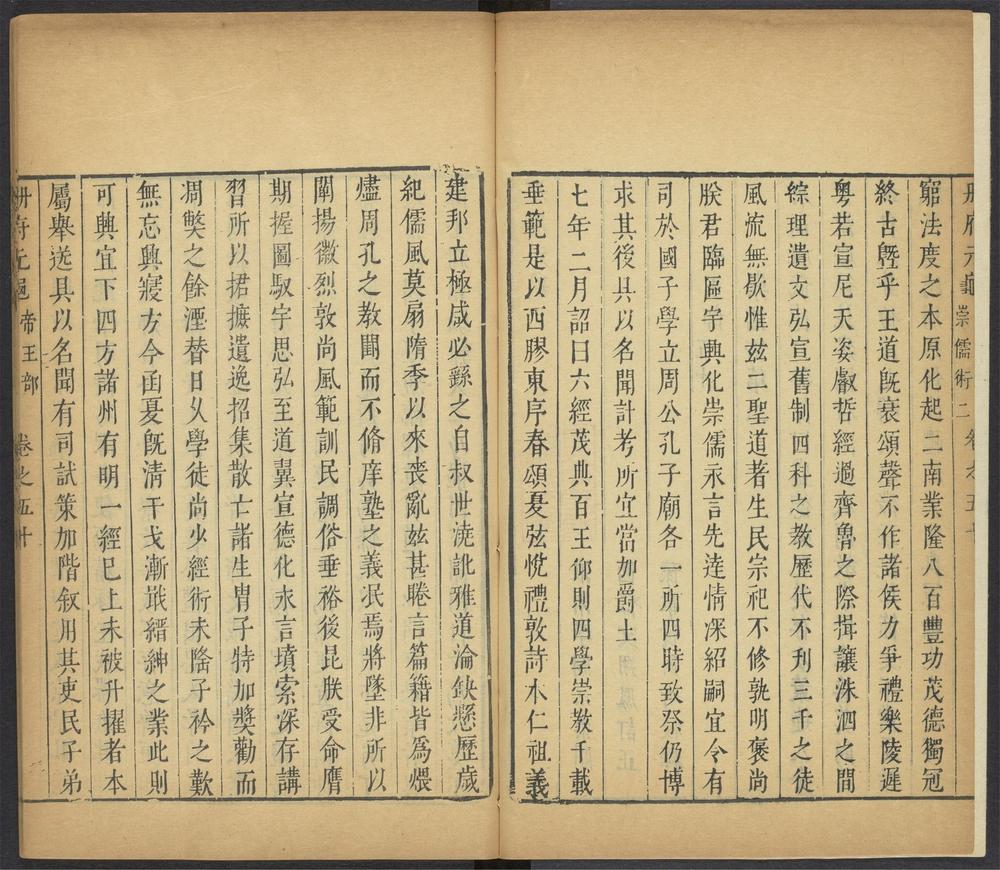 冊府元龜 崇儒術二 卷之五十
窮法度之本原化起二南業隆八百豐功茂德獨冠
終古曁乎王道旣衰頌聲不作諸侯力爭禮樂陵遲
粵若宣尼天姿叡哲經過齊魯之際揖讓洙泗之間
綜理遺文弘宣舊制四科之教歷代不刊三千之徒
風流無歇惟玆二聖道著生民宗祀不修孰明褒尚
朕君臨區宇興化崇儒永言先逹情深紹嗣宜令有
司於國子學立周公孔子廟各一所四時致祭仍博
求其後具以名聞計考所宜當加爵土
七年二月詔曰六經茂典百王仰則四學崇教千載
垂範是以西膠東序春頌夏弦恱禮敦詩本仁祖義
建邦立極咸必繇之自叔世澆訛雅道淪缺懸歷歲
紀儒風莫扇隋季以來喪亂玆甚睠言篇籍皆爲煨
燼周孔之教闃而不脩庠塾之義泯焉將墜非所以
闡揚徽烈敦尚風範訓民調俗垂裕後昆朕受命膺
期握圖馭宇思弘至道冀宣德化永言墳索深存講
習所以捃摭遺逸招集散亡諸生冑子特加獎勸而
凋獘之餘湮替日乆學徒尚少經術未隆子衿之歎
無忘興寢方今函夏旣淸干戈漸戢縉紳之業此則
可興宜下四方諸州有明一經已上未被升擢者本
屬舉送具以名聞有司試策加階敘用其吏民子弟
冊府元龜 帝王部 卷之五十